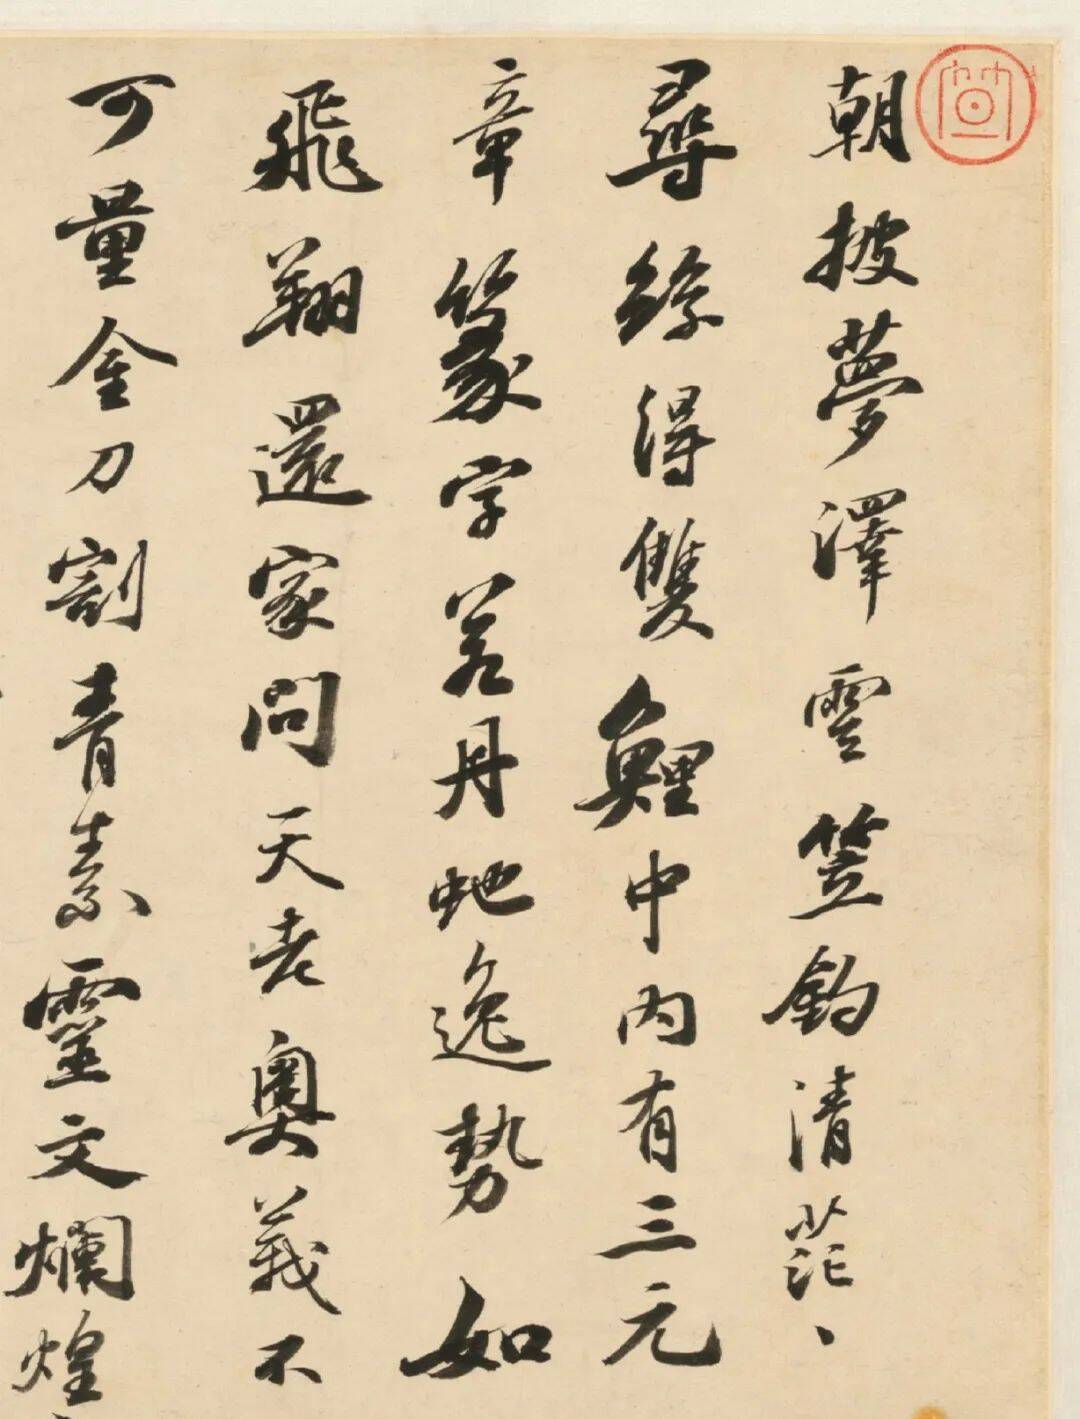 朝披夢澤雲笠釣清茫、
尋絲得雙鯉中内有三元
章篆字若丹虵逸勢如
飛翔還家問天老奧義不
可量金刀割青素靈文爛煌